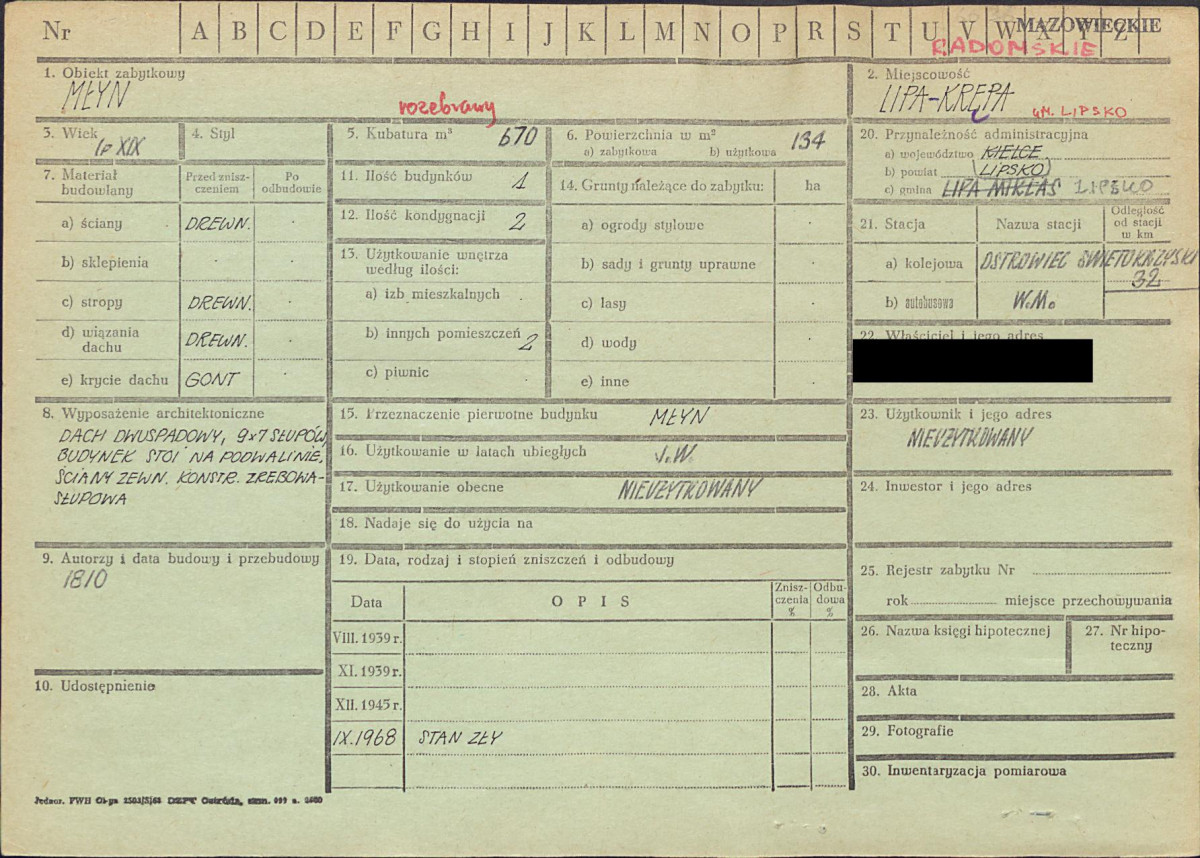 Nr A B C D E F G H I J K L M N O P R S T U V W X Y Z
MAZOWIECKIE
RADOMSKIE
1. Obiekt zabytkowy
MŁYN
rozebrany
2. Miejscowość
LIPA-KRĘPA
gm. LIPSKO
3. Wiek
1p XIX
4. Styl
5. Kubatura m³ 670
6. Powierzchnia w m² 134
a) zabytkowa b) użytkowa
7. Materiał budowlany
Przed zniszczeniem
Po odbudowie
a) ściany DREWN.
b) sklepienia
c) stropy DREWN.
d) wiązania dachu DREWN.
e) krycie dachu GONT
8. Wyposażenie architektoniczne
DACH DWUSPADOWY, 9x7 SŁUPÓW,
BUDYNEK STOI NA PODWALINIE,
ŚCIANY ZEWN. KONSTR. ZRĘBOWA-
SŁUPOWA
9. Autorzy i data budowy i przebudowy
1810
10. Udostępnienie
11. Ilość budynków 1
12. Ilość kondygnacji 2
13. Użytkowanie wnętrza
według ilości:
a) izb mieszkalnych
b) innych pomieszczeń 2
c) piwnic
14. Grunty należące do zabytku: ha
a) ogrody stylowe
b) sady i grunty uprawne
c) lasy
d) wody
e) inne
15. Przeznaczenie pierwotne budynku MŁYN
16. Użytkowanie w latach ubiegłych J.W.
17. Użytkowanie obecne NIEUŻYTKOWANY
18. Nadaje się do użycia na
19. Data, rodzaj i stopień zniszczeń i odbudowy
Data OPIS Zniszczenia % Odbudowa %
VIII. 1939 r.
XI. 1939 r.
XII. 1945 r.
IX.1968 STAN ZŁY
20. Przynależność administracyjna
a) województwo KIELCE
b) powiat (LIPSKO)
c) gmina LIPA MIKLAS LIPSKO
21. Stacja Nazwa stacji Odległość od stacji w km
a) kolejowa OSTROWIEC ŚWIĘTOKRZYSKI 32
b) autobusowa W.M.
22. Właściciel i jego adres
23. Użytkownik i jego adres
NIEUŻYTKOWANY
24. Inwestor i jego adres
25. Rejestr zabytku Nr
rok miejsce przechowywania
26. Nazwa księgi hipotecznej
27. Nr hipoteczny
28. Akta
29. Fotografie
30. Inwentaryzacja pomiarowa